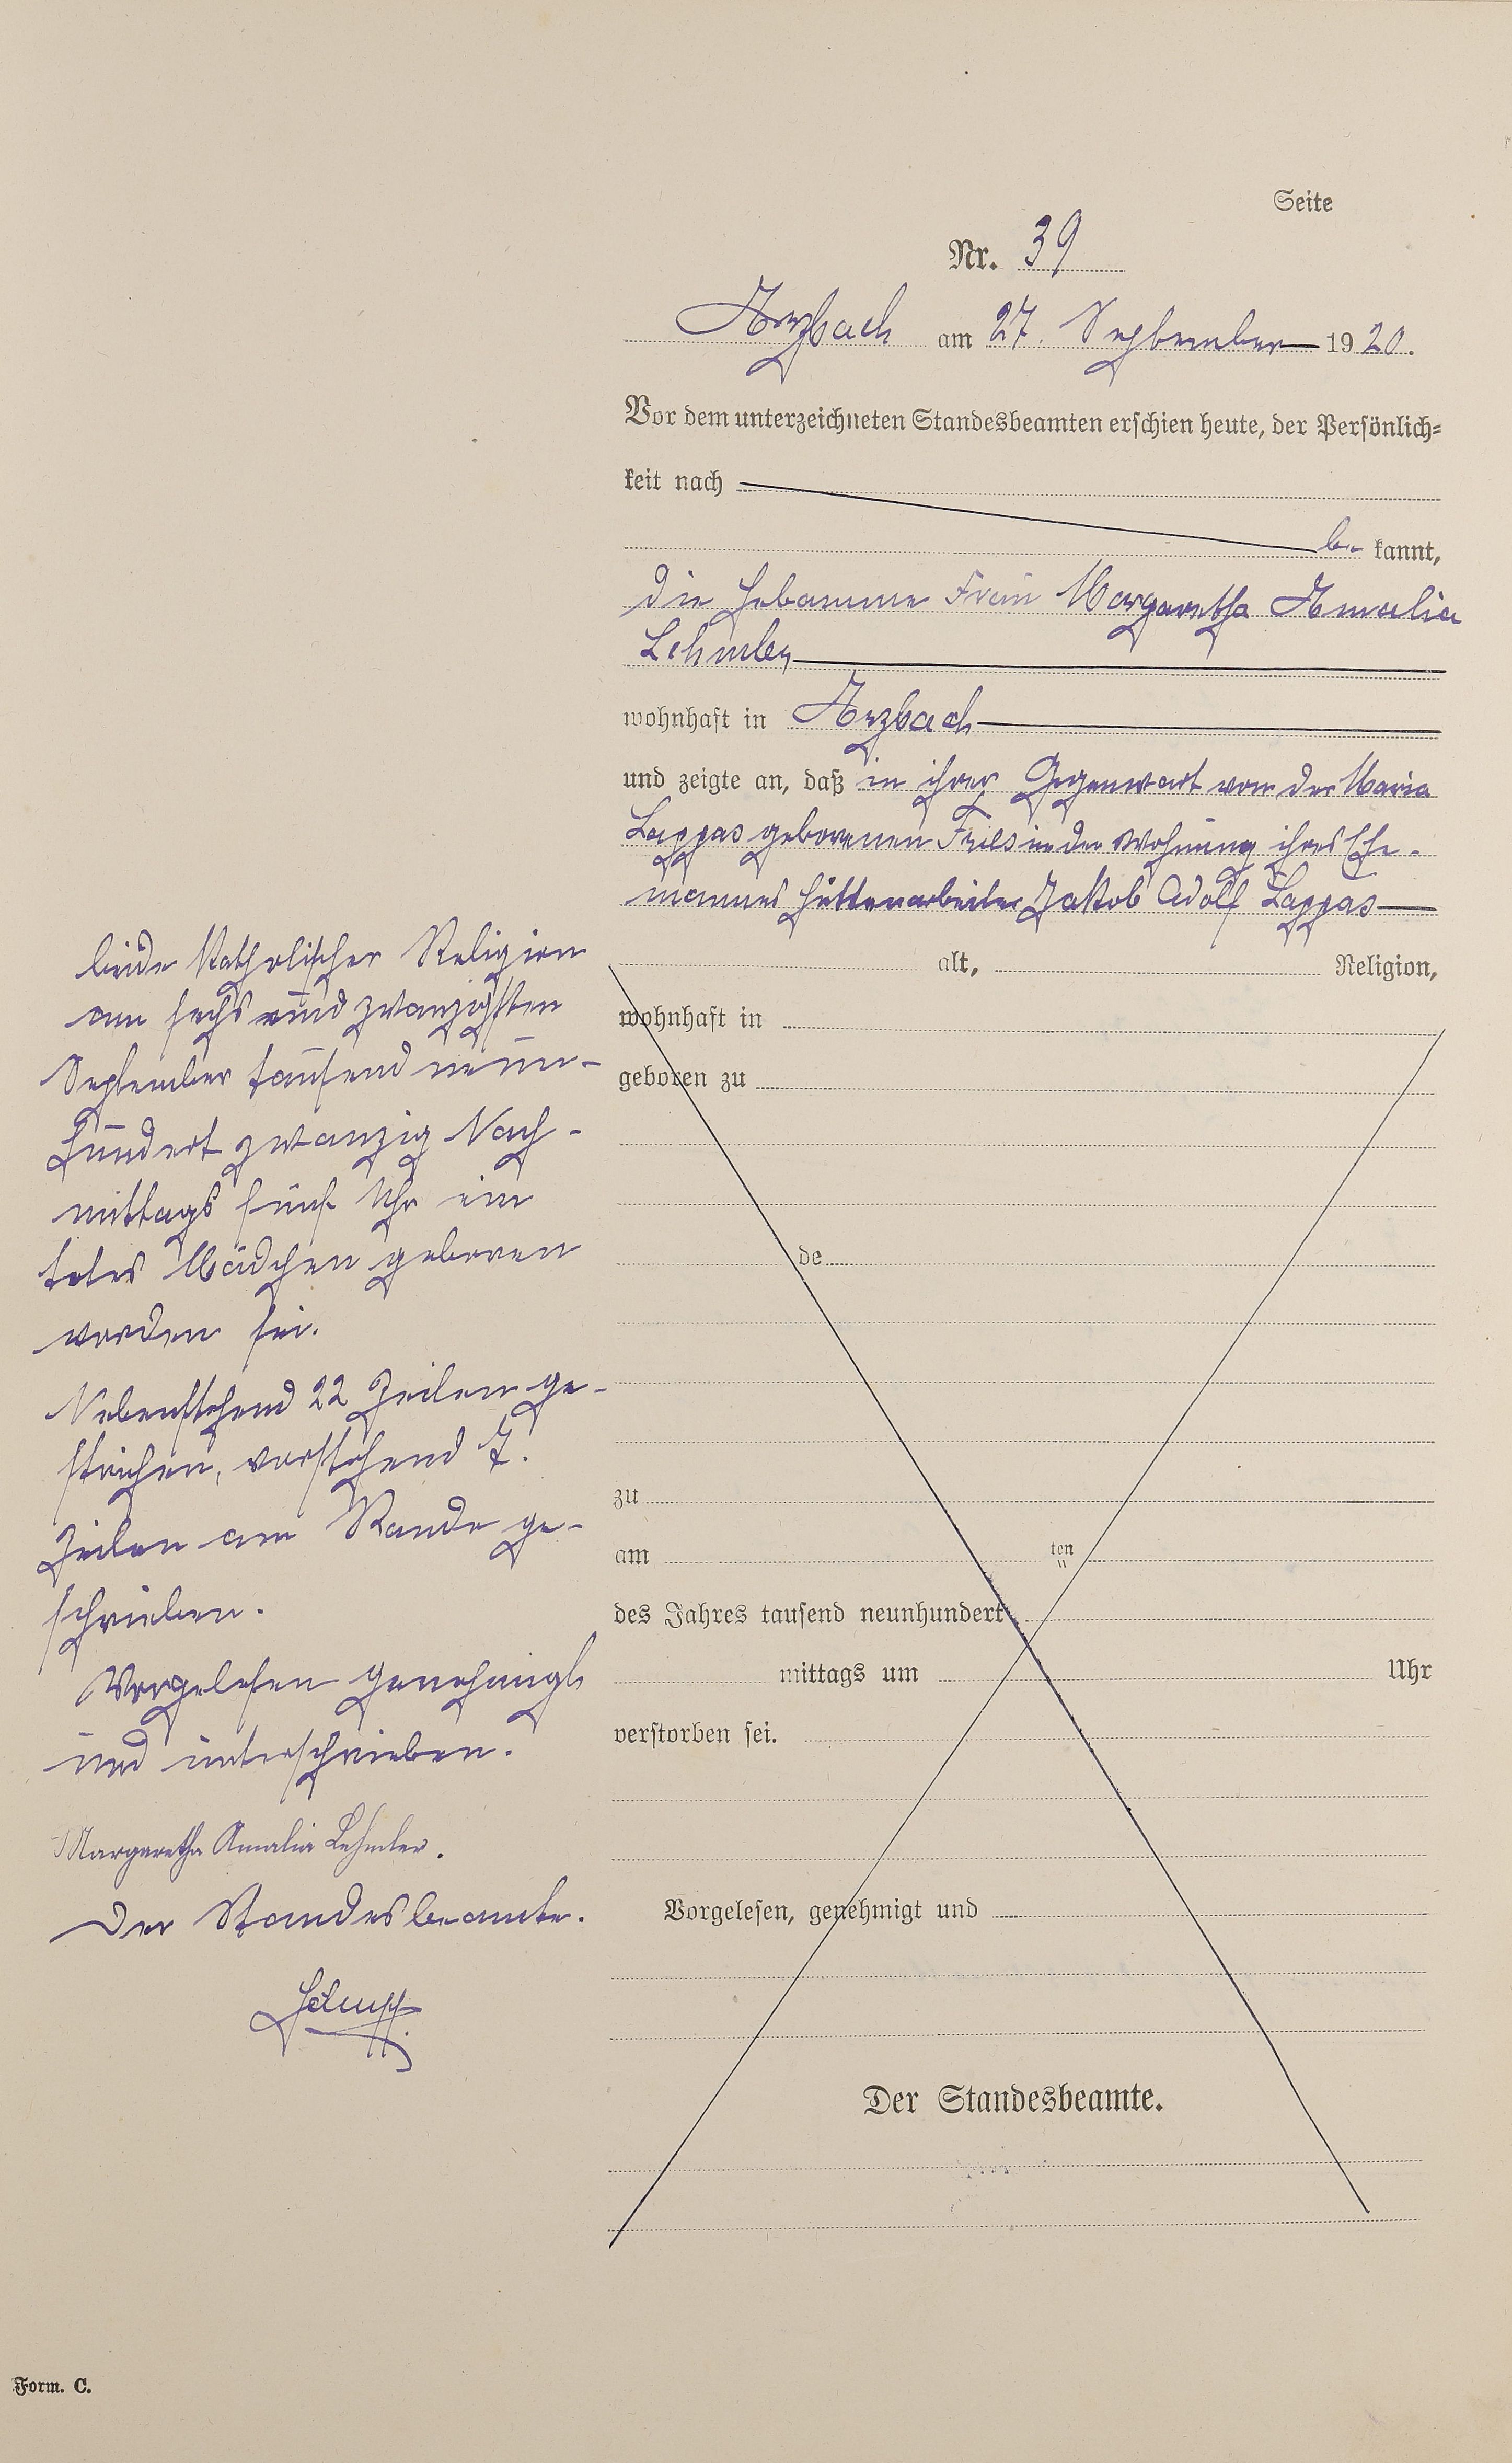 Seite
Nr. 39
Arzbach am 27. September 1920.
Vor dem unterzeichneten Standesbeamten erschien heute, der Persönlich=
keit nach
be kannt,
die Hebamme Frau Margaretha Amalia
Lehmler
wohnhaft in Arzbach
und zeigte an, daß in ihrer Gegenwart von der Maria
Lappas geborenen Fries in der Wohnung ihres Ehe-
mannes Hüttenarbeiter Jakob Adolf Lappas
alt, Religion,
wohnhaft in
geboren zu
de
zu
am ten
des Jahres tausend neunhundert
mittags um Uhr
verstorben sei.
Vorgelesen, genehmigt und
Der Standesbeamte.
beide katholischer Religion
am sechs und zwanzigsten
September tausend neun-
hundert zwanzig Nach-
mittags fünf Uhr ein
totes Mädchen geboren
worden sei.
Nebenstehend 22 Zeilen ge-
strichen, vorstehend 7.
Zeilen am Rande ge-
schrieben.
Vorgelesen genehmigt
und unterschrieben.
Margaretha Amalia Lehmler.
Der Standesbeamte.
Form. C.